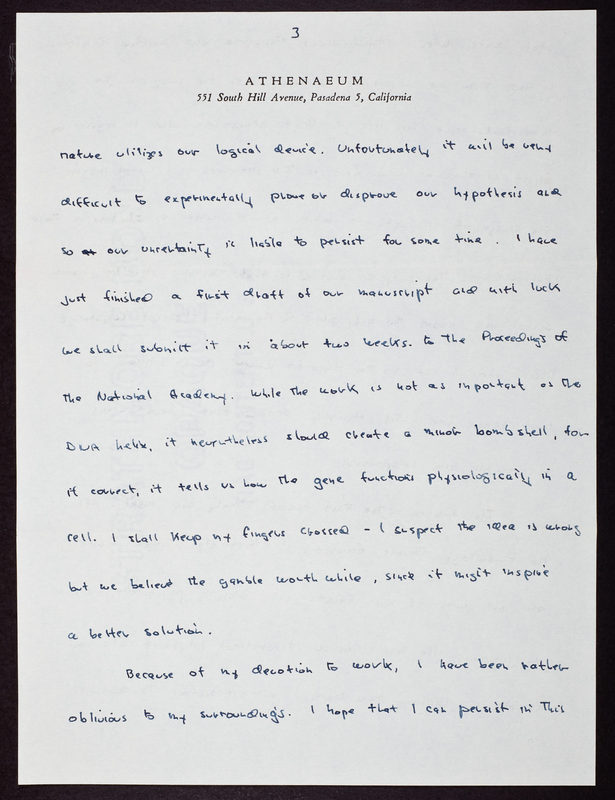 3
ATHENAEUM
551 South Hill Avenue, Pasadena 5, California
nature utilizes our logical device. Unfortunately it will be very
difficult to experimentally prove or disprove our hypothesis and
so our uncertainty is liable to persist for some time. I have
just finished a first draft of our manuscript and with luck
we shall submit it in about two weeks. to the Proceedings of
the National Academy. While the work is not as important as the
DNA helix, it nevertheless should create a minor bombshell, for
if correct, it tells us how the gene functions physiologically in a
cell. I shall keep my fingers crossed - I suspect the idea is wrong
but we believe the gamble worth while, since it might inspire
a better solution.
Because of my devotion to work, I have been rather
oblivious to my surroundings. I hope that I can persist in this